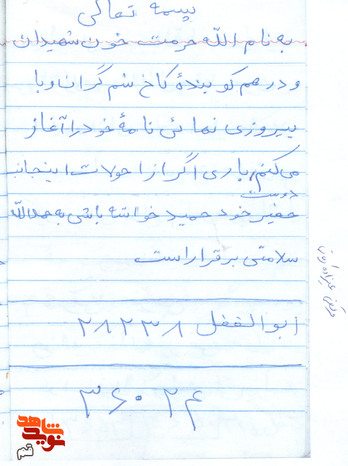 بسمه تعالی
به نام الله حرمت خون شهیدان
و در هم کوبندهٔ کاخ ستم گران و با
پیروزی نهائی نامهٔ خود را آغاز
می‌کنم باری اگر از احوالات اینجانب
دوست
حقیر خود حمید خواسته باشی به حمدالله
سلامتی برقرار است
ابوالفضل ۲۸۲۳۸
۳۶۰۲۴
شاهد
نوید
قم